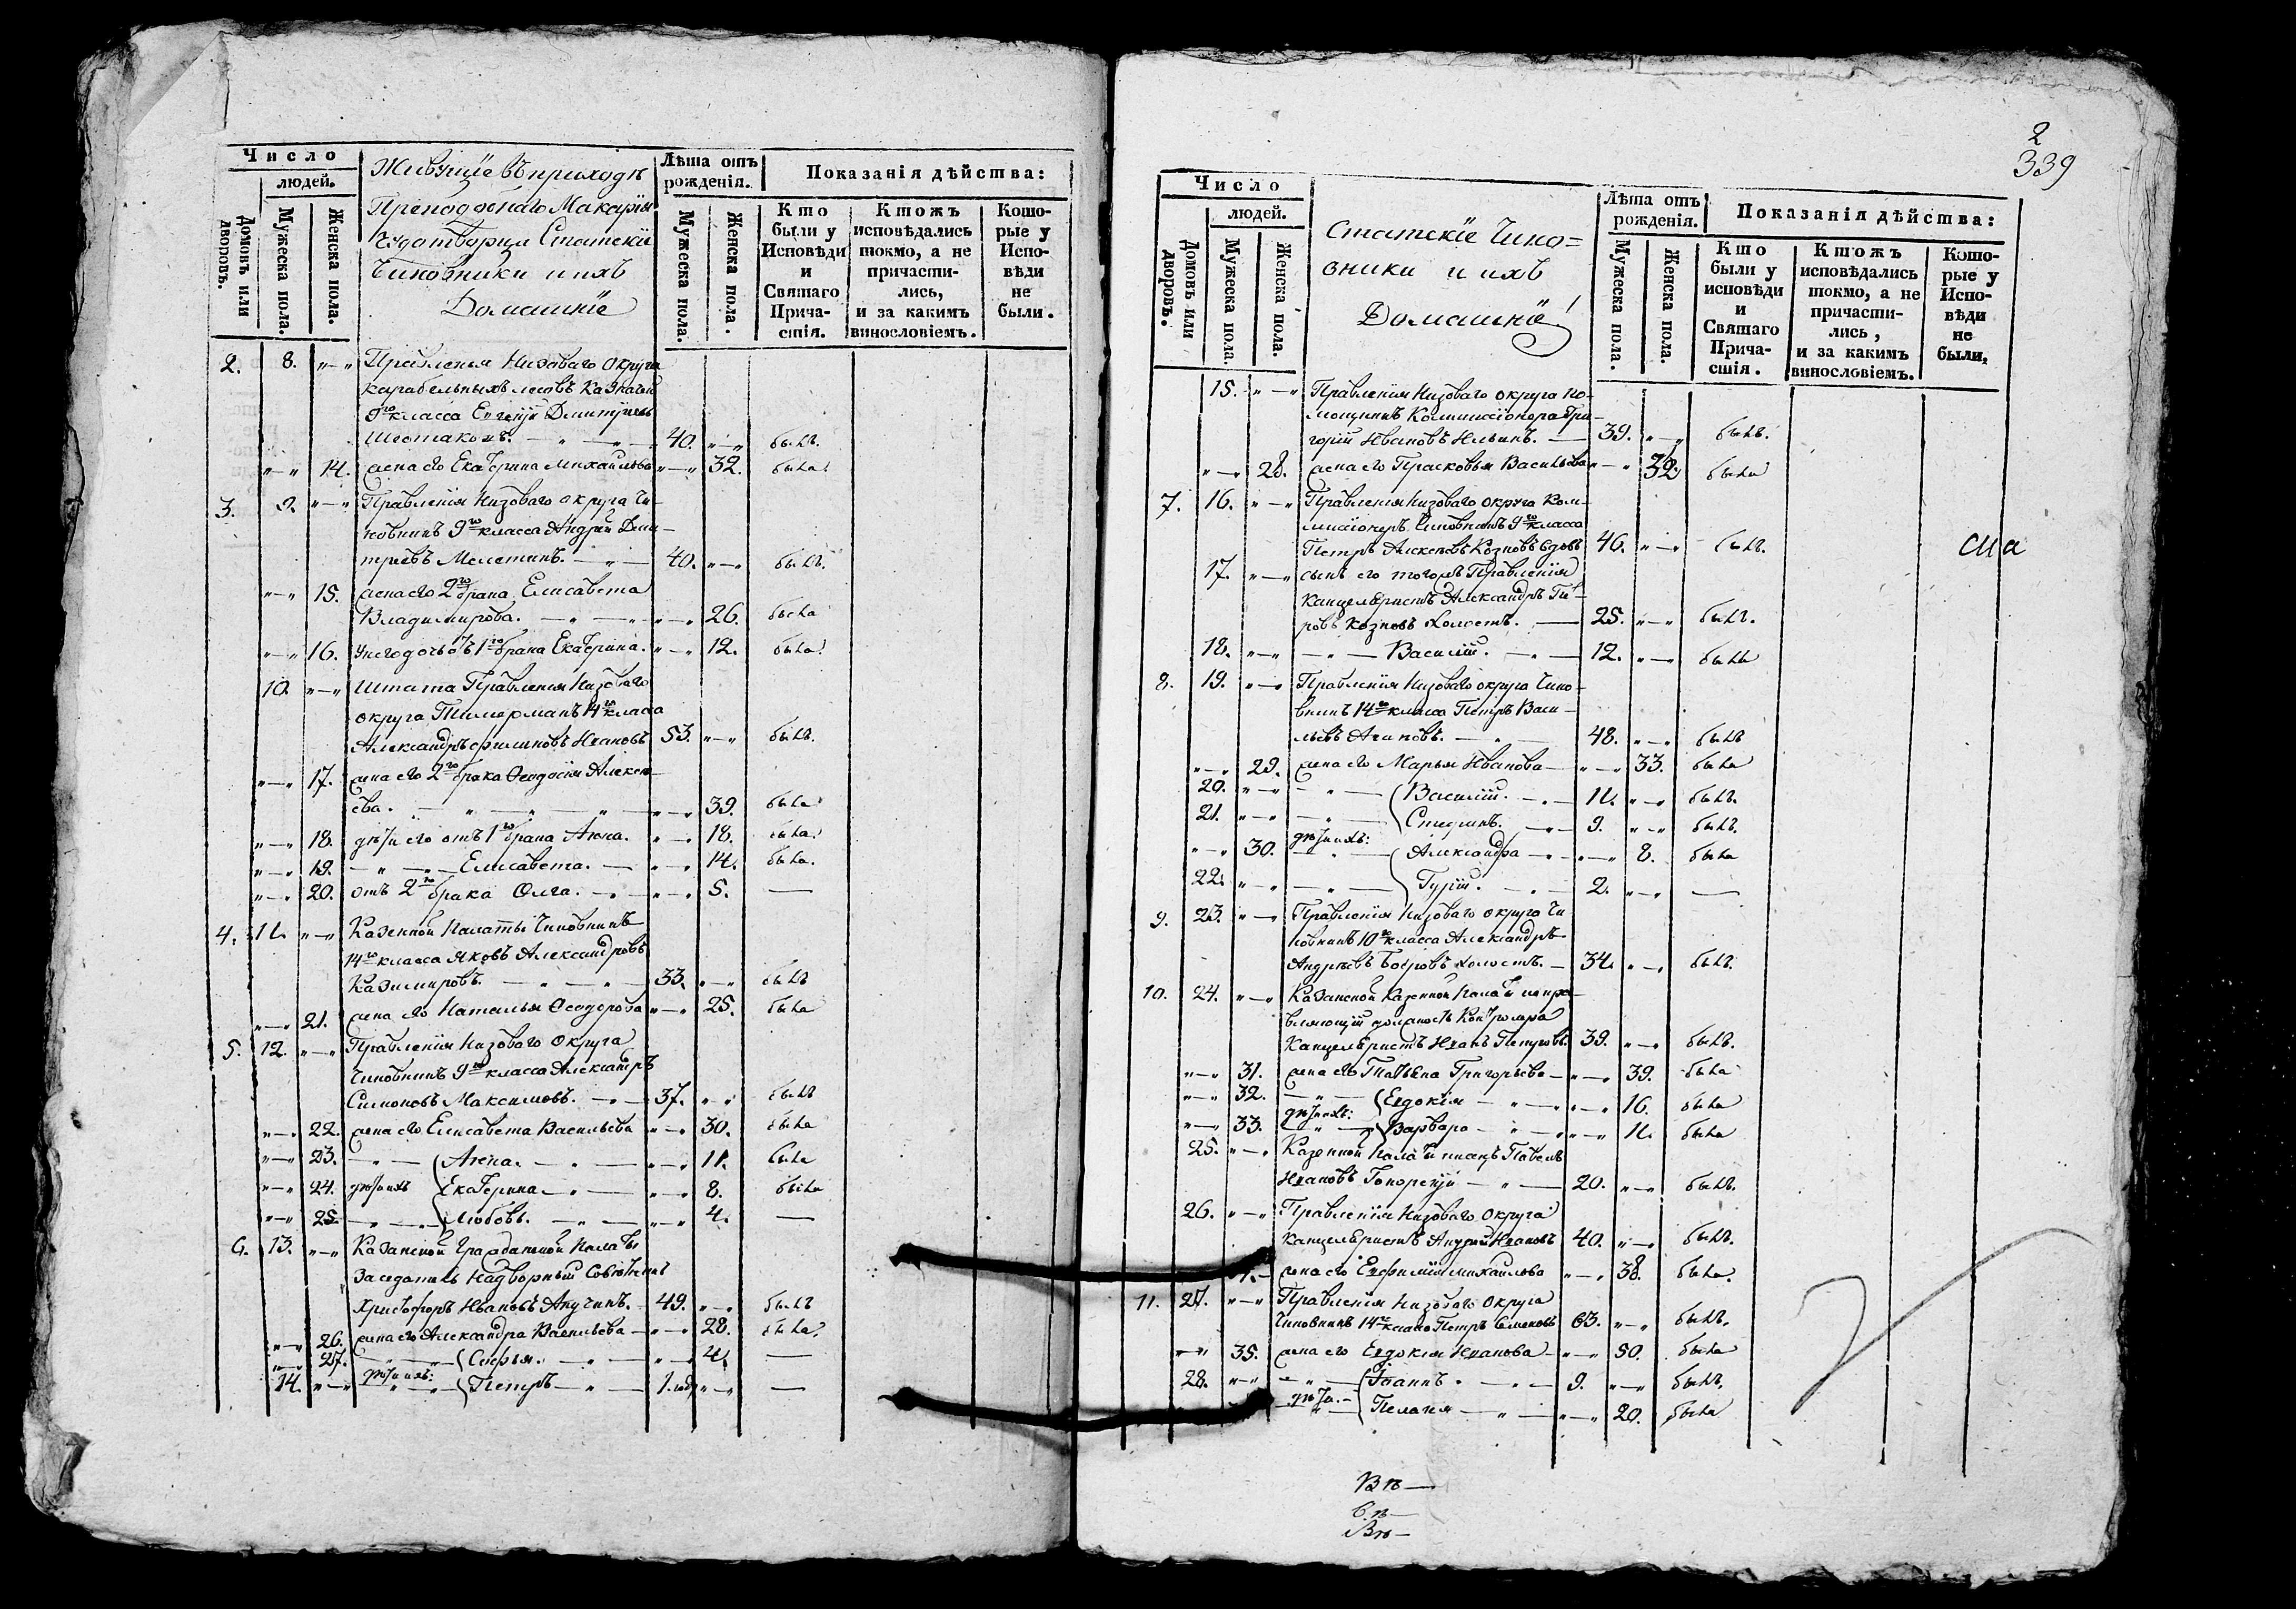 Число
людей.
Домовъ или дворовъ.
Мужеска пола.
Женска пола.
Живущіе въ приходѣ
Преподобнаго Макарія
Чудотворца Статскіе
Чиновники и ихъ
Домашніе
Лѣта отъ рожденія.
Мужеска пола.
Женска пола.
Показанія дѣйства:
Кто были у Исповѣди и Святаго Причастія.
Ктожъ исповѣдались токмо, а не причастились, и за какимъ винословіемъ.
Которые у Исповѣди не были.
2. 8. Правленія Низоваго Округа
карабельныхъ лесовъ Казначей
9го класса Евгеній Дмитріевъ
40. былъ.
14. жена его Екатерина Михайлова 32. была
3. 9. Правленія Низоваго округа Чи-
новникъ 9го класса Андрей Дми-
тріевъ Мелетинъ. 40. былъ.
15. жена его 2го брака Елисавета
Владимирова. 26. была
16. у него дочь отъ 1го брака Екатерина. 12. была
10. Штата Правленія Низоваго
округа Тимерманъ 14го класса
Александръ Филиповъ Ивановъ 53. былъ.
17. жена его 2го брака Феодосія Алексе-
ева. 39. была
18. дѣти его отъ 1го брака Анна. 18. была
19. Елисавета. 14. была.
20. отъ 2го брака Олга. 5. —
4. 11. Казенной Палаты Чиновникъ
14го класса Яковъ Александровъ
Казимировъ. 33. былъ
21. жена его Наталья Феодорова 25. была
5. 12. Правленія Низоваго Округа
Чиновникъ 9го класса Александръ
Симоновъ Максимовъ. 37. былъ
22. жена его Елисавета Васильева 30. была
23. Анна. 11. была
24. дѣти ихъ Екатерина 8. была
25. Любовь. 4. —
6. 13. Казанской Гражданской Палаты
Заседатель Надворный Советникъ
Христофоръ Ивановъ Анучинъ. 49. былъ
26. жена его Александра Васильева 28. была
27. Софья. 4. —
14. дѣти ихъ: Петръ 1. годъ —
2
339
Число
людей.
Домовъ или дворовъ.
Мужеска пола.
Женска пола.
Статскіе Чино=
вники и ихъ
Домашніе
Лѣта отъ рожденія.
Мужеска пола.
Женска пола.
Показанія дѣйства:
Кто были у исповѣди и Святаго Причастія.
Ктожъ исповѣдались токмо, а не причастились, и за какимъ винословіемъ.
Которые у Исповѣди не были,
15. Правленія Низоваго округа По-
мощникъ Коммисіонера Гри-
горій Ивановъ Ильинъ. 39. былъ.
28. жена его Прасковья Васильева 32. была
7. 16. Правленія Низоваго округа Ком-
мисіонеръ Чиновникъ 9го класса
Петръ Алексеевъ Козловъ вдовъ 46. былъ.
17. сынъ его тогожъ Правленія
Канцеляристъ Александръ Пет-
ровъ Козловъ холостъ. 25. былъ.
18. Василій. 12. былъ
8. 19. Правленія Низоваго округа Чино-
вникъ 14го класса Петръ Васи-
льевъ Агаповъ. 48. былъ
29. жена его Марья Иванова 33. была
20. Василій. 11. былъ.
21. Стефанъ. 9. былъ.
30. дѣти ихъ: Александра 8. была
22. Гурій. 2. —
9. 23. Правленія Низоваго округа Чи
новникъ 10го класса Александръ
Андреевъ Бобровъ холостъ. 34. былъ.
10. 24. Казанской Казенной Палаты испра-
вляющій должность Контролера
Канцеляристъ Иванъ Петровъ 39. былъ.
31. жена его Татьяна Григорьева 39. была
32. Евдокія 16. была
33. дѣти ихъ: Варвара 11. была
25. Казенной Палаты писецъ Павелъ
Ивановъ 20. былъ.
26. Правленія Низоваго Округа
Канцеляристъ Андрей Ивановъ 40. былъ.
жена его Евфимія Михайлова 38. была.
11. 27. Правленія Низоваго Округа
Чиновникъ 14го класса Петръ Семеновъ 63. былъ.
35. жена его Евдокія Иванова 50. была
28. Іоаннъ. 9. былъ.
дѣти. Пелагія 20. была